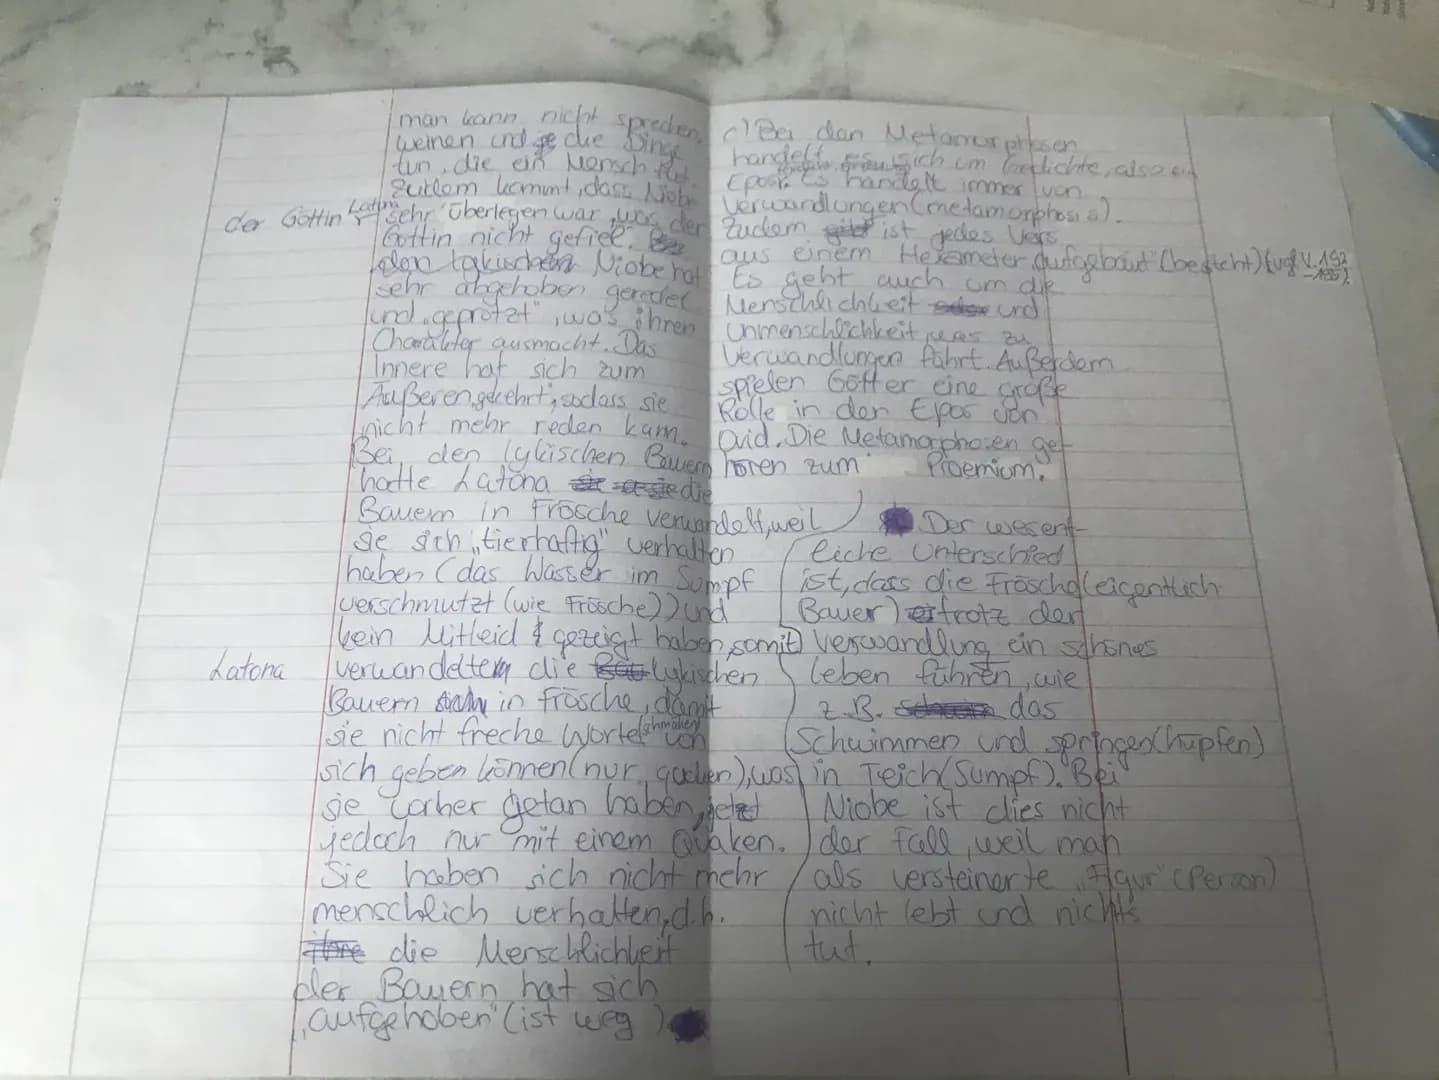 man kann nicht sprechen,
weinen und die Dinge
tun, die ein Mensch tut.
Zudem kommt, dass Niobe
der Göttin Latona sehr überlegen war, was der
Göttin nicht gefiel.
Niobe hat
sehr abgehoben geredet
und „geprotzt", was ihren
Charakter ausmacht. Das
Innere hat sich zum
Äußeren gekehrt, sodass sie
nicht mehr reden kann.
Bei den lykischen Bauern
hatte Latona die
Bauern in Frösche verwandelt, weil
sie sich „tierhaftig" verhalten
haben (das Wasser im Sumpf
verschmutzt (wie Frösche)) und
kein Mitleid gezeigt haben, somit
Latona verwandelten die lykischen
Bauern in Frösche, damit
sie nicht freche Worte von
sich geben können (nur), was
sie vorher getan haben, jetzt
jedoch nur mit einem Quaken.
Sie haben sich nicht mehr
menschlich verhalten, d.h.
die Menschlichkeit
der Bauern hat sich
„aufgehoben" (ist weg)
c) Bei den Metamorphosen
handelt es sich um Gedichte, also ein
Epos. Es handelt immer von
Verwandlungen (metamorphosis).
Zudem ist jedes Vers
aus einem Hexameter aufgebaut (bedicht) (vgl. V. 192
Es geht auch um die
Menschlichkeit und
Unmenschlichkeit, was zu
Verwandlungen führt. Außerdem
spielen Götter eine große
Rolle in den Epos von
Ovid. Die Metamorphosen ge-
hören zum Proemium.
Der wesent-
liche Unterschied
ist, dass die Frösche (eigentlich
Bauer) trotz der
Verwandlung ein schönes
Leben führen, wie
z.B. das
Schwimmen und springen (hüpfen)
in Teich (Sumpf). Bei
Niobe ist dies nicht
der Fall, weil man
als versteinerte „Figur" (Person)
nicht lebt und nichts
tut.